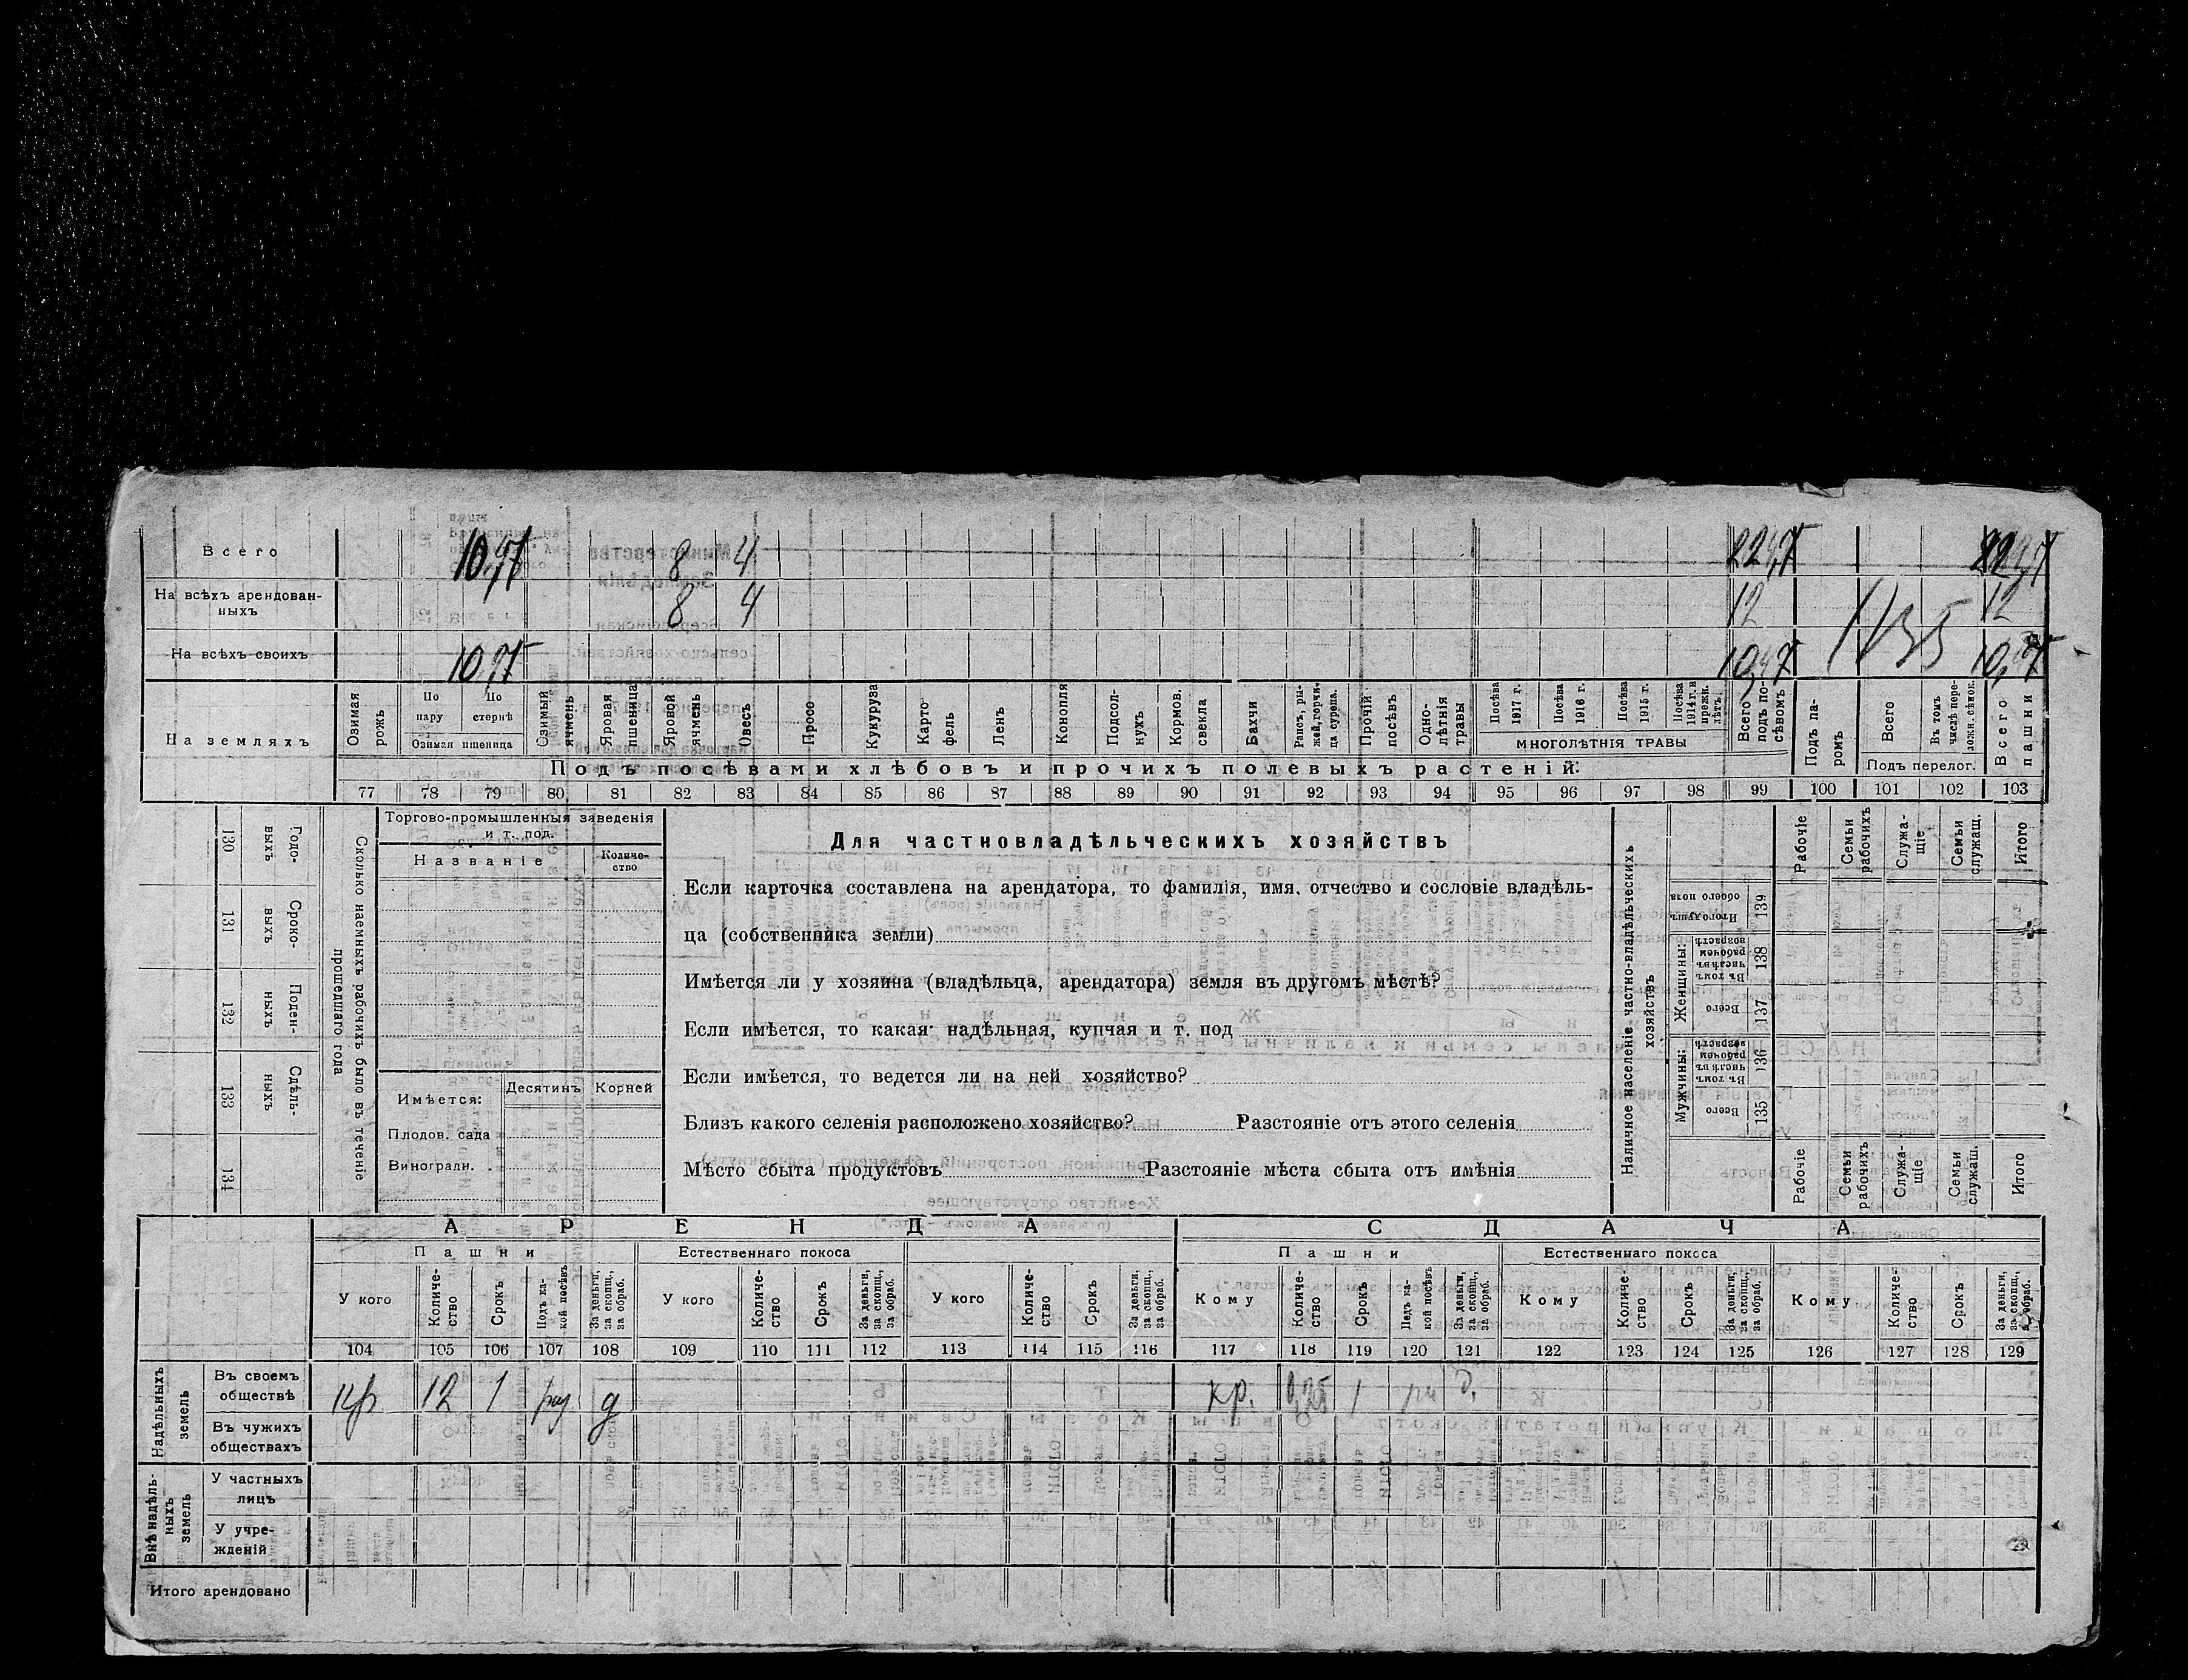 Всего 8 4
На всѣхъ арендован-
ныхъ 8 4 12 12
На всѣхъ своихъ
На земляхъ
Озимая рожь
По пару
По стернѣ
Озимая пшеница
Озимый ячмень
Яровая пшеница
Яровой ячмень
Овесъ
Просо
Кукуруза
Карто-
фель
Ленъ
Конопля
Подсол-
нухъ
Кормов. свекла
Бахчи
Рапсъ, ры-
жей, горчи-
ца сурепа.
Прочій посѣвъ
Одно-
лѣтнія травы
Посѣва 1917 г.
Посѣва 1916 г.
Посѣва 1915 г.
Посѣва 1914 г. и прежн. лѣтъ.
МНОГОЛѢТНІЯ ТРАВЫ
Всего подъ по-
сѣвомъ
Подъ па-
ромъ
Всего
Въ томъ числѣ пере-
ложн. сѣнок.
Подъ перелог.
Всего пашни
Подъ посѣвами хлѣбовъ и прочихъ полевыхъ растеній:
77 78 79 80 81 82 83 84 85 86 87 88 89 90 91 92 93 94 95 96 97 98 99 100 101 102 103
130 Годо-
выхъ
131 Сроко-
выхъ
132 Поден-
ныхъ
133 Сдѣль-
ныхъ
134
Сколько наемныхъ рабочихъ было въ теченіе
прошедшаго года
Торгово-промышленныя заведенія
и т. под.
Названіе
Количе-
ство
Имѣется:
Десятинъ Корней
Плодов. сада
Виноградн. .
Для частновладѣльческихъ хозяйствъ
Если карточка составлена на арендатора, то фамилія, имя, отчество и сословіе владѣль-
ца (собственника земли)
Имѣется ли у хозяина (владѣльца, арендатора) земля въ другомъ мѣстѣ?
Если имѣется, то какая: надѣльная, купчая и т. под
Если имѣется, то ведется ли на ней хозяйство?
Близъ какого селенія расположено хозяйство? Разстояніе отъ этого селенія
Мѣсто сбыта продуктовъ Разстояніе мѣста сбыта отъ имѣнія
Наличное населеніе частно-владѣльческихъ
хозяйствъ
Рабочіе
Семьи рабочихъ
Служа-
щіе
Семьи служащ.
Итого
Итого душъ обоего пола 139
Женщины:
Въ томъ числѣ въ рабочемъ возрастѣ 138
Всего 137
Мужчины:
Въ томъ числѣ въ рабочемъ возрастѣ 136
Всего 135
Рабочіе
Семьи рабочихъ
Служа-
щіе
Семьи служащ.
Итого
АРЕНДА СДАЧА
Пашни Естественнаго покоса Пашни Естественнаго покоса
У кого
Количе-
ство
Срокъ
Подъ ка-
кой посѣвъ
За деньги, за скопщ., за обраб.
У кого
Количе-
ство
Срокъ
За деньги, за скопщ., за обраб.
У кого
Количе-
ство
Срокъ
За деньги, за скопщ., за обраб.
Кому
Количе-
ство
Срокъ
Подъ ка-
кой посѣвъ
За деньги, за скопщ., за обраб.
Кому
Количе-
ство
Срокъ
За деньги, за скопщ., за обраб.
Кому
Количе-
ство
Срокъ
За деньги, за скопщ., за обраб.
104 105 106 107 108 109 110 111 112 113 114 115 116 117 118 119 120 121 122 123 124 125 126 127 128 129
Надѣльныхъ
земель
Въ своемъ
обществѣ кр 12 1 д кр. 1 д.
Въ чужихъ
обществахъ
Внѣ надѣль-
ныхъ
земель
У частныхъ
лицъ
У учре-
жденій
Итого арендовано